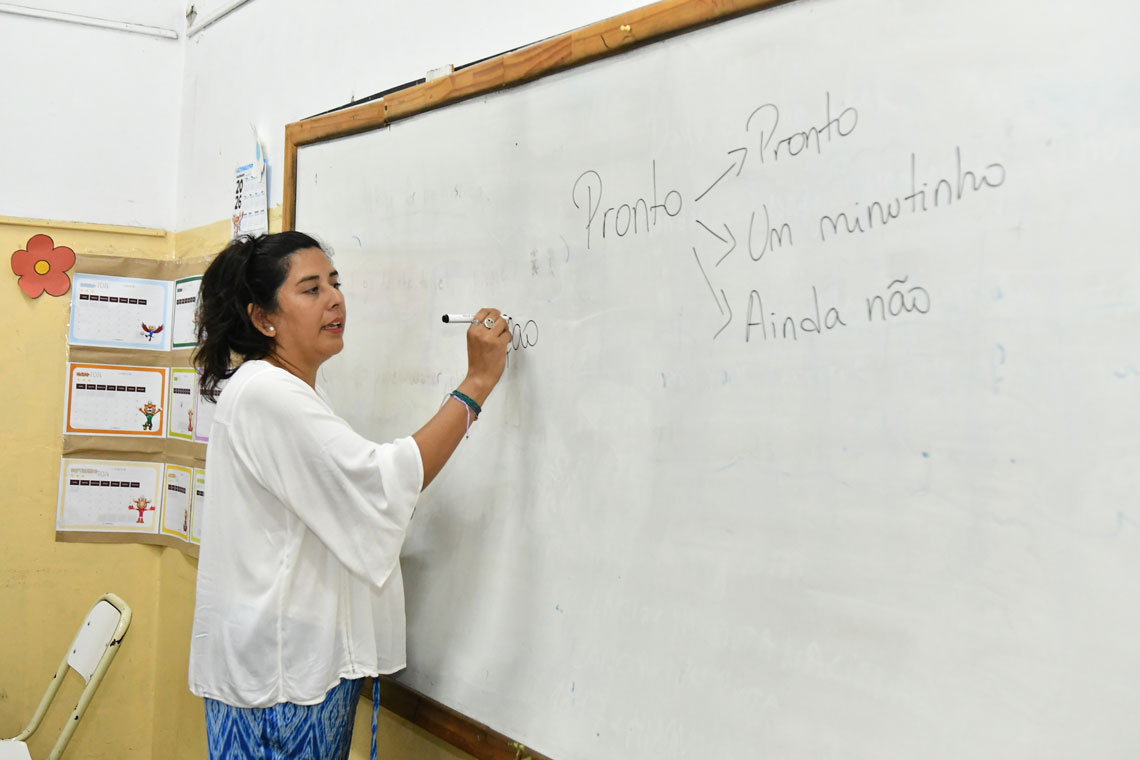 Pronto
Pronto
Um minutinho
Ainda não
20
26